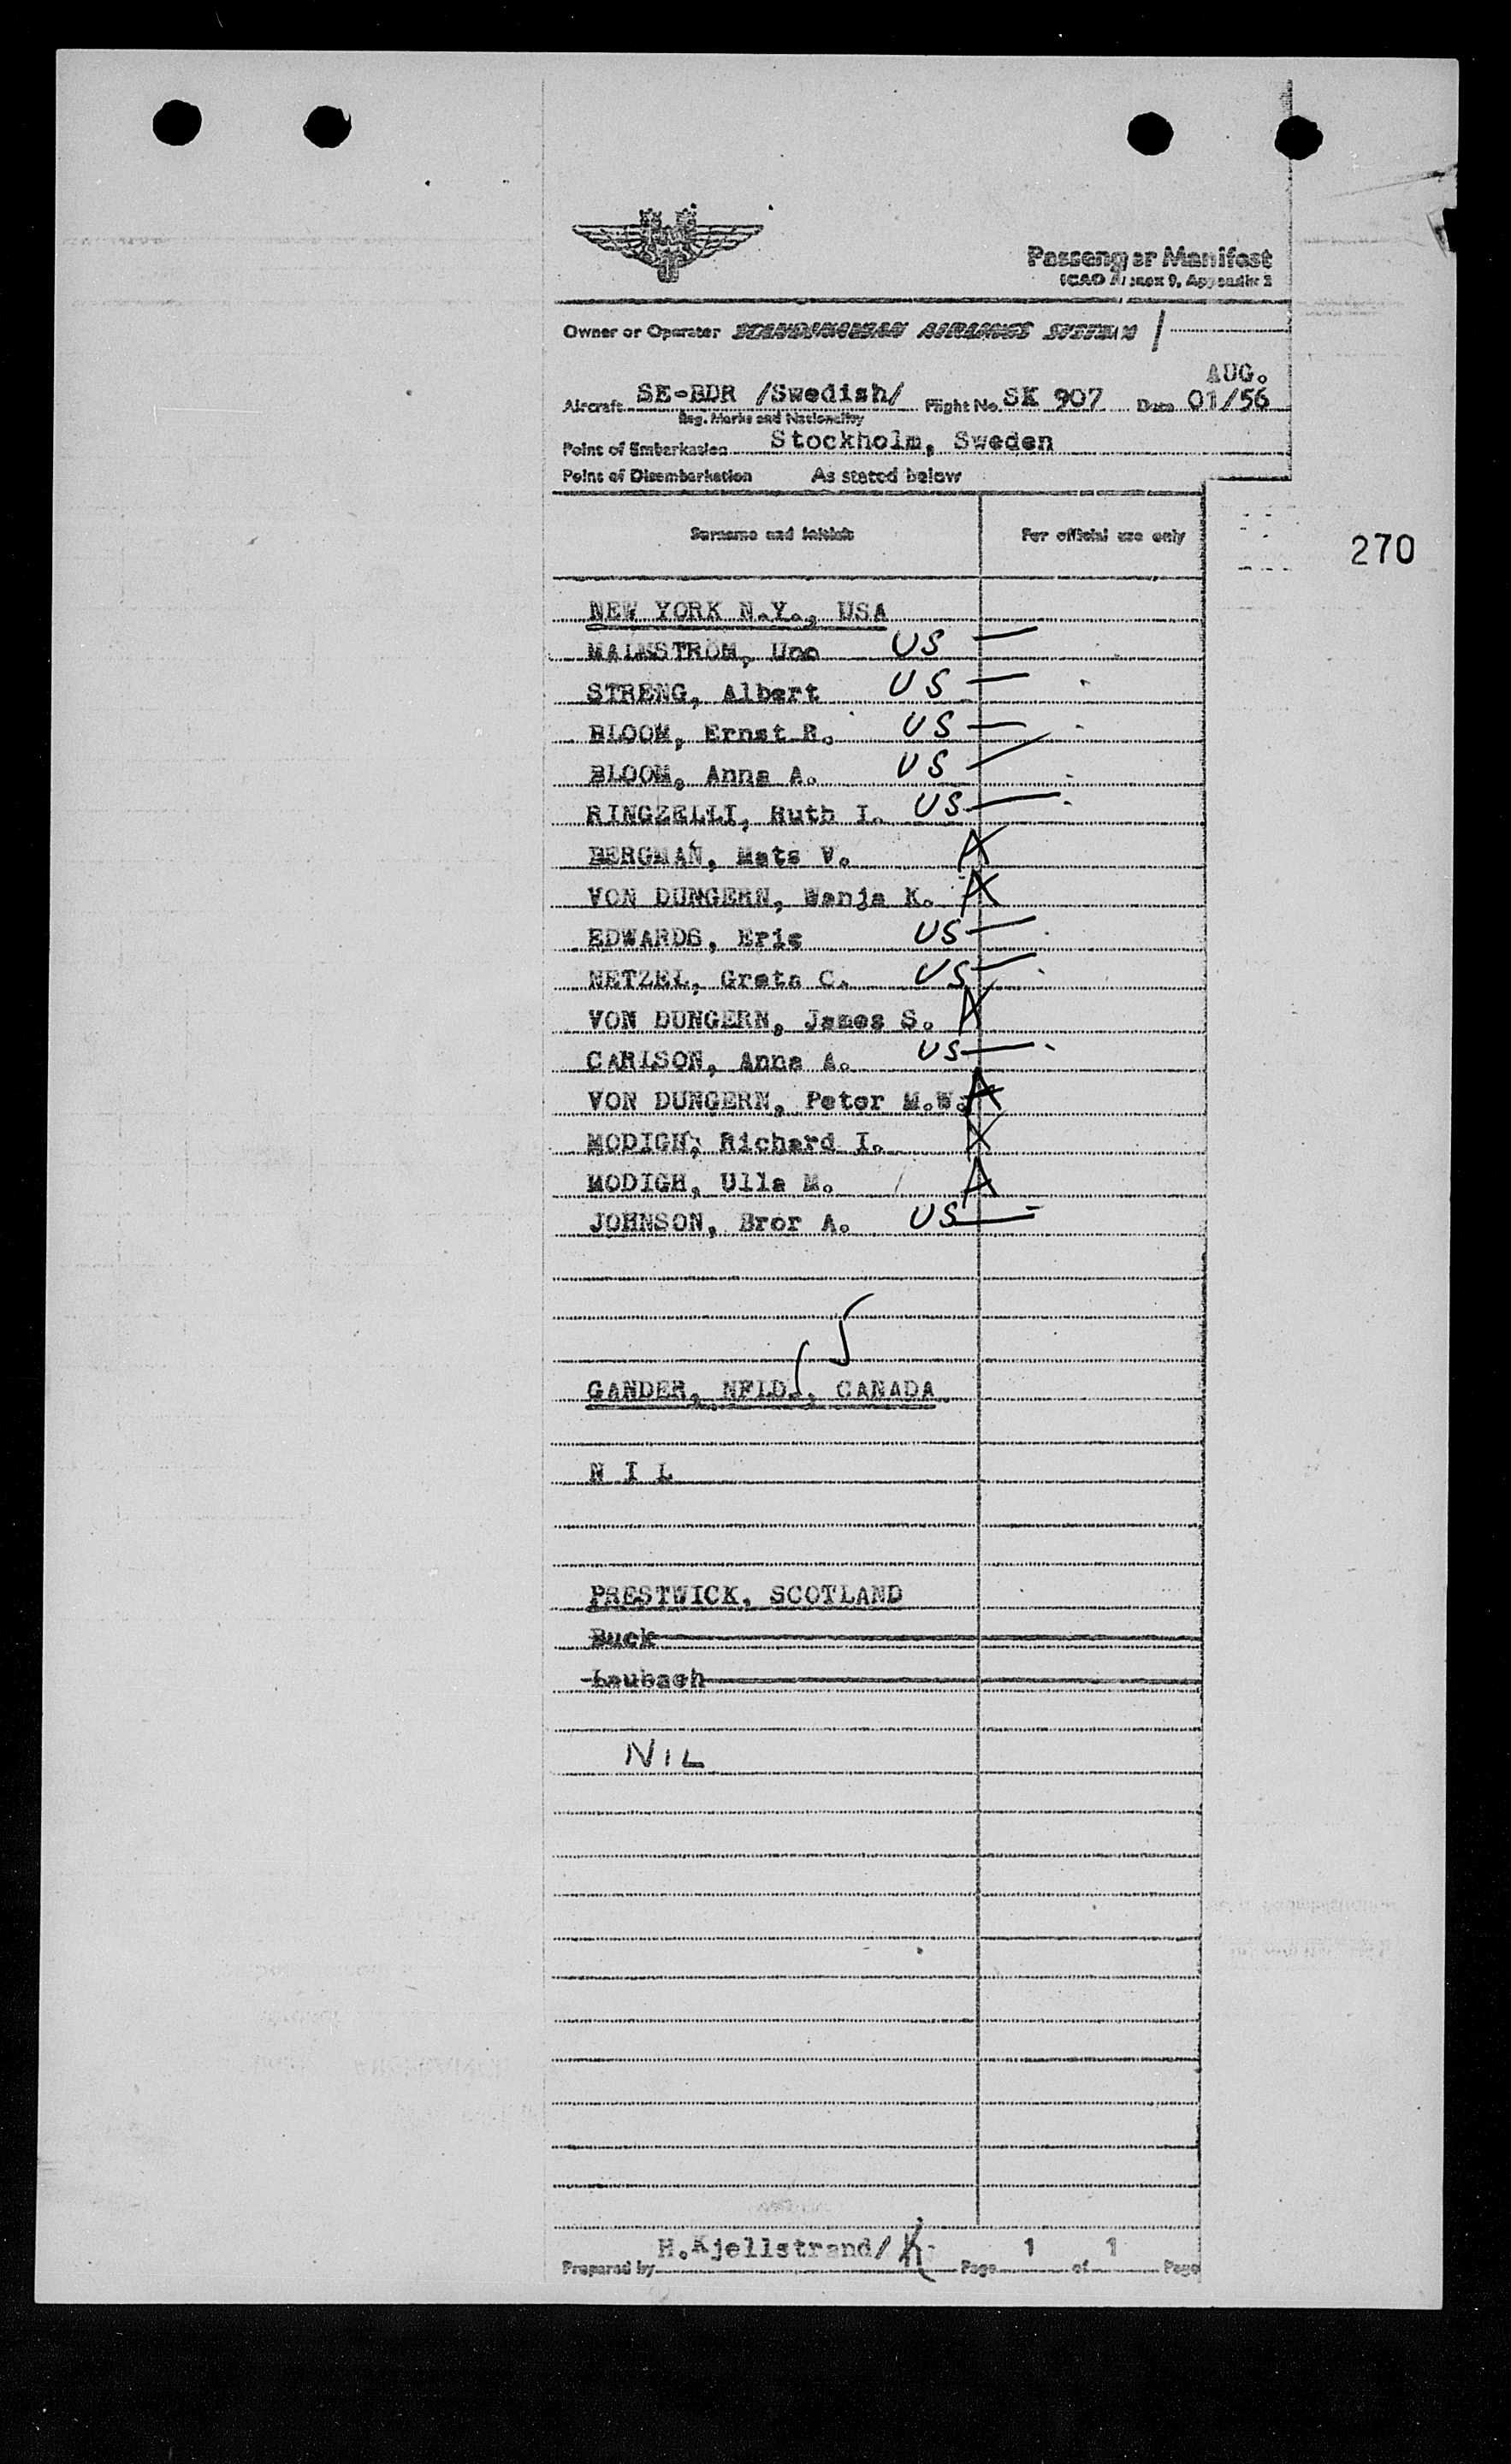 Passenger Manifest
ICAO Annex 9, Appendix 2
Owner or Operator SCANDINAVIAN AIRLINES SYSTEM
AUG.
Aircraft SE-BDR /Swedish/ Flight No. SK 907 Date 01/56
Reg. Marks and Nationality
Point of Embarkation Stockholm, Sweden
Point of Disembarkation As stated below
Surname and initials For official use only
270
NEW YORK N.Y., USA
MALMSTRÖM, Uno US —
STRENG, Albert US —
BLOOM, Ernst R. US —
BLOOM, Anna A. US —
RINGZELLI, Ruth I. US —
BERGMAN, Mats V. A
VON DUNGERN, Wanja K. A
EDWARDS, Eric US —
NETZEL, Greta C. US —
VON DUNGERN, James S. A
CARLSON, Anna A. US —
VON DUNGERN, Peter M.W. A
MODIGH, Richard I. A
MODIGH, Ulla M. A
JOHNSON, Bror A. US —
15
GANDER, NFLD., CANADA
N I L
PRESTWICK, SCOTLAND
Buck
Laubach
NIL
Prepared by H.Kjellstrand/ Page 1 of 1 Page